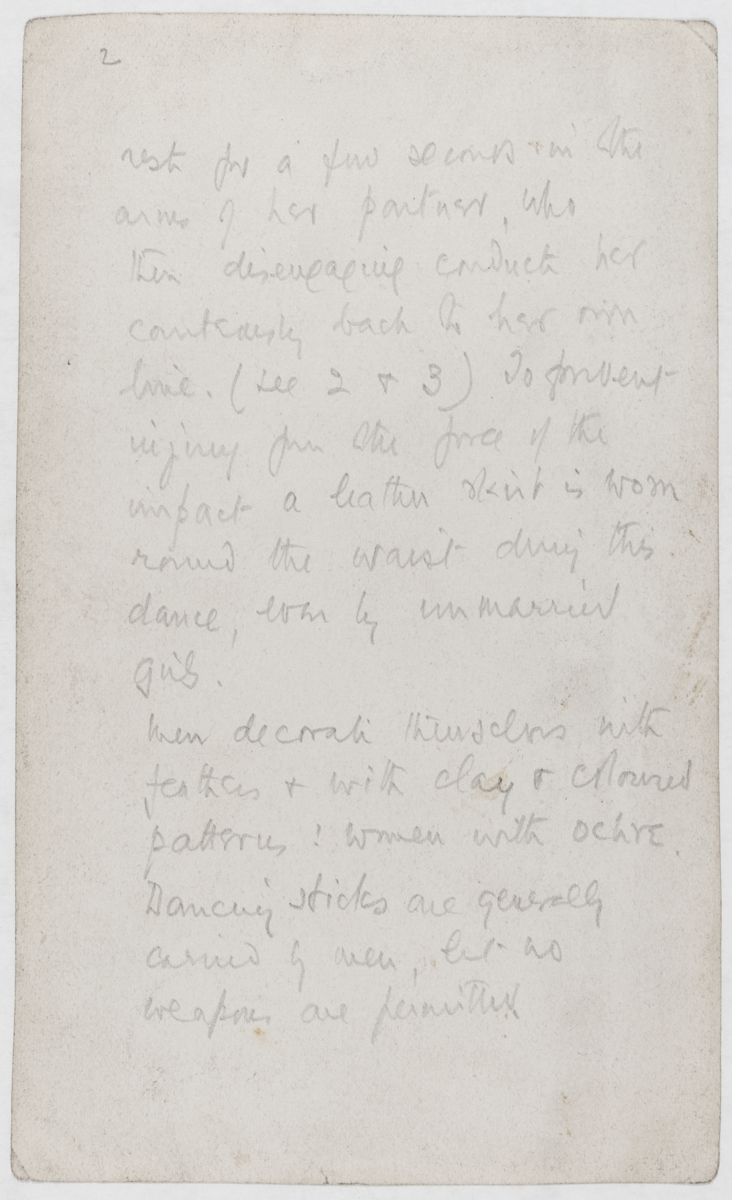 2
rest for a few seconds in the
arms of her partner, who
then disengaging conducts her
courteously back to her own
line. (see 2 & 3) To prevent
injury from the force of the
impact a leather skirt is worn
round the waist during this
dance, even by unmarried
girls.
Men decorate themselves with
feathers & with clay & coloured
patterns: women with ochre.
Dancing sticks are generally
carried by men, but no
weapons are permitted.